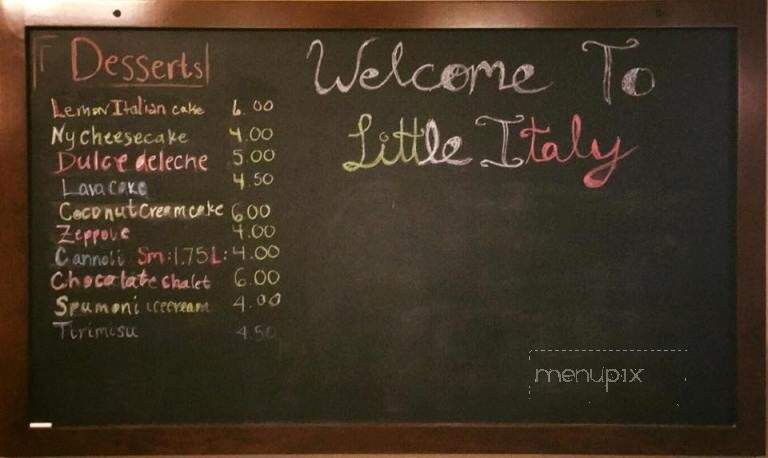 Desserts
Lemon Italian cake 6.00
Ny cheesecake 4.00
Dulce deleche 5.00
Lava cake 4.50
Coconut Cream cake 6.00
Zeppole 4.00
Cannoli Sm:1.75 L:4.00
Chocolate chalet 6.00
Spumoni icecream 4.00
Tirimisu 4.50
Welcome To
Little Italy
menupix